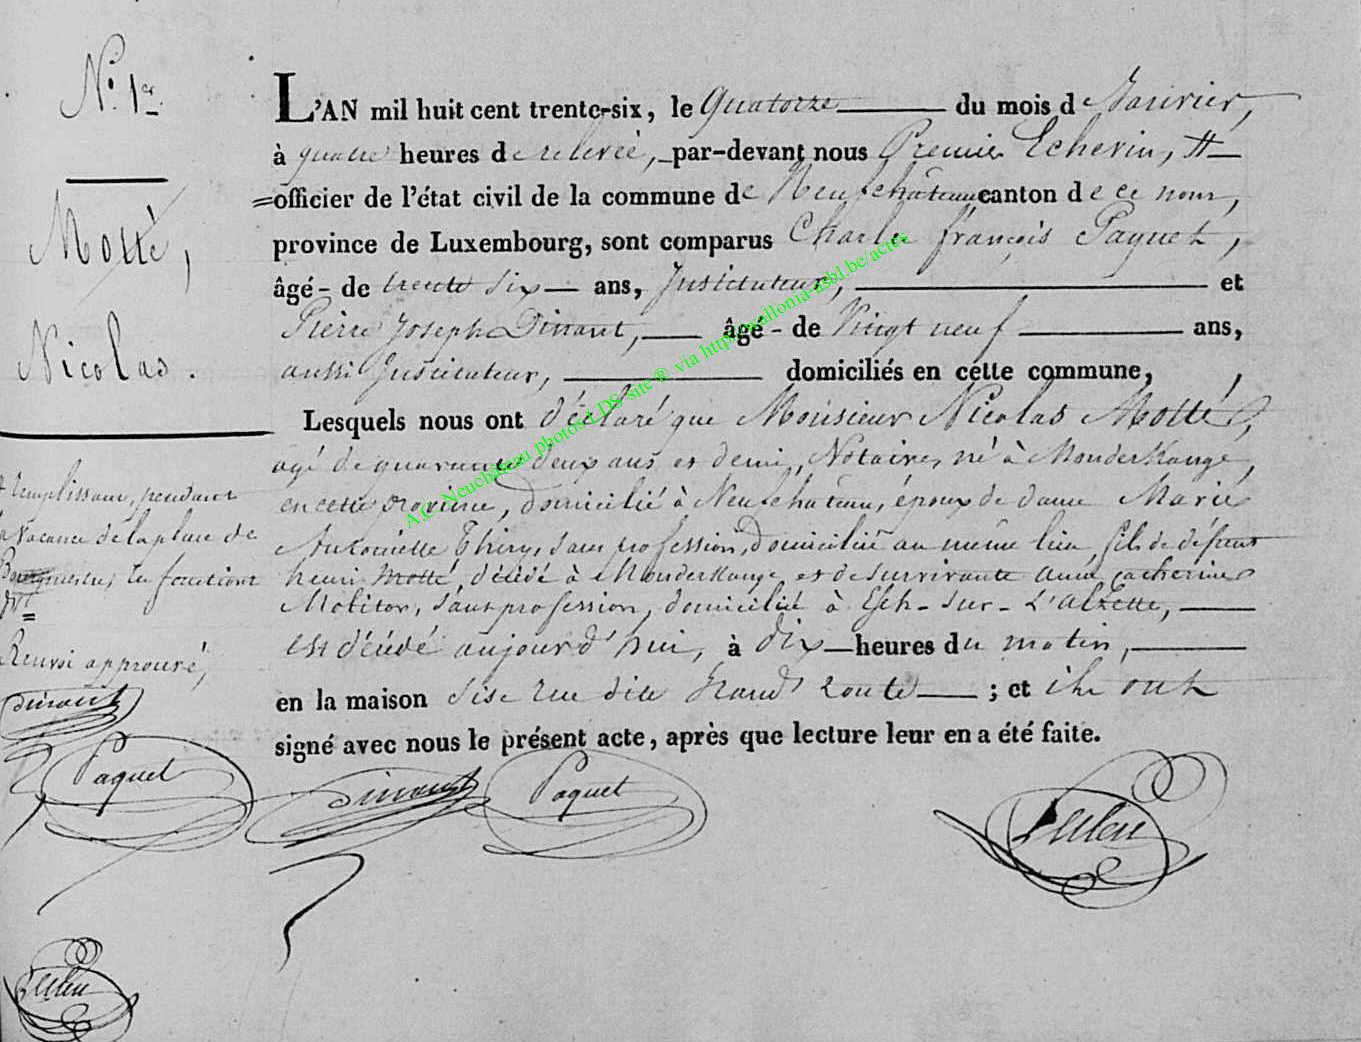 N.° 1er
Motté,
Nicolas.
L'AN mil huit cent trente-six, le Quatorze du mois de Janvier,
à quatre heures de relevée, par-devant nous Premier Echevin, #
officier de l'état civil de la commune de Neufchâteau canton de ce nom,
province de Luxembourg, sont comparus Charles françois Paquet,
âgé - de trente six ans, Instituteur, et
Pierre Joseph Dinant, âgé - de Vingt neuf ans,
aussi Instituteur, domiciliés en cette commune,
Lesquels nous ont déclaré que Monsieur Nicolas Motté,
agé de quarante deux ans et demi, Notaire, né à Monderkange,
en cette province, domicilié à Neufchâteau, époux de dame Marie
Antoinette Thiry, sans profession, domiciliée au même lieu, fils de défunt
henri Motté, décédé à Monderkange, et de survivante anne catherine
Molitor, sans profession, domiciliée à Esch-sur-L'alzette,
est décédé aujourd'hui, à dix heures du matin,
en la maison sise rue dite Grand'route ; et ils ont
signé avec nous le présent acte, après que lecture leur en a été faite.
# remplissant, pendant
la Vacance de la place de
Bourgmestre, les fonctions
d'
Renvoi approuvé,
Dinant
Paquet
Dinant
Paquet
A.C. Neuchâteau photos LDS-site ® via http://wallonia-asbl.be/actes